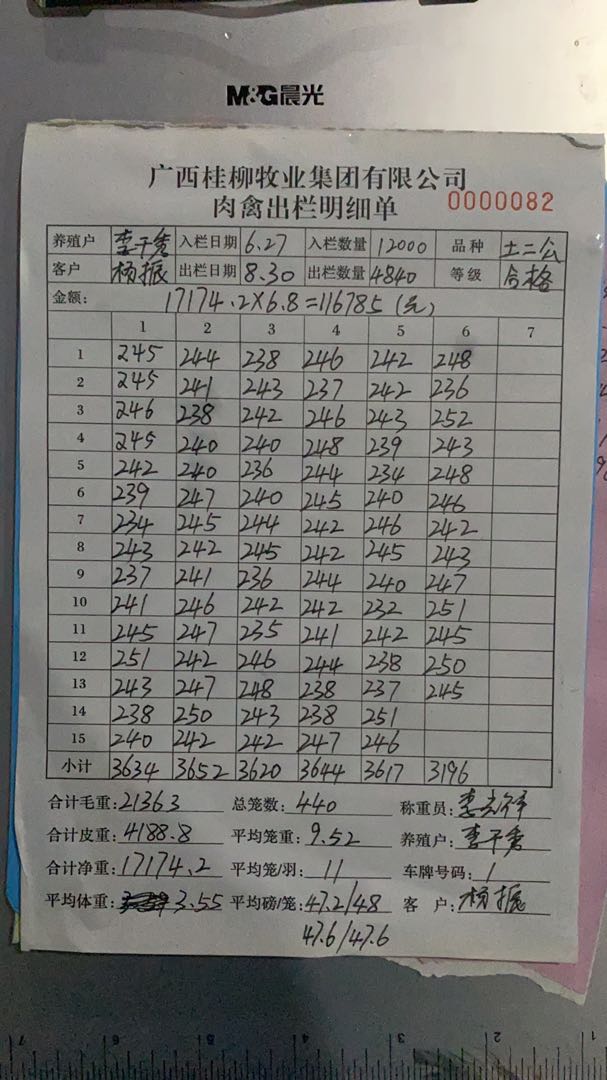 M&G晨光
广西桂柳牧业集团有限公司
肉禽出栏明细单 0000082
养殖户 李干秀 入栏日期 6.27 入栏数量 12000 品种 土二公
客户 杨振 出栏日期 8.30 出栏数量 4840 等级 合格
金额: 17174.2×6.8=116785(元)
1 2 3 4 5 6 7
1 245 244 238 246 242 248
2 245 241 243 237 242 236
3 246 238 242 246 243 252
4 245 240 240 248 239 243
5 242 240 236 244 234 248
6 239 247 240 245 240 246
7 234 245 244 242 246 242
8 243 242 245 242 245 243
9 237 241 236 244 240 247
10 241 246 242 242 232 251
11 245 247 235 241 242 245
12 251 242 246 244 238 250
13 243 247 248 238 237 245
14 238 250 243 238 251
15 240 242 242 247 246
小计 3634 3652 3620 3644 3617 3196
合计毛重:21363 总笼数:440 称重员:李
合计皮重:4188.8 平均笼重:9.52 养殖户:李干秀
合计净重:17174.2 平均笼/羽:11 车牌号码:1
平均体重:3.55 平均磅/笼:47.2/48 客户:杨振
47.6/47.6
7 6 5 4 3 2